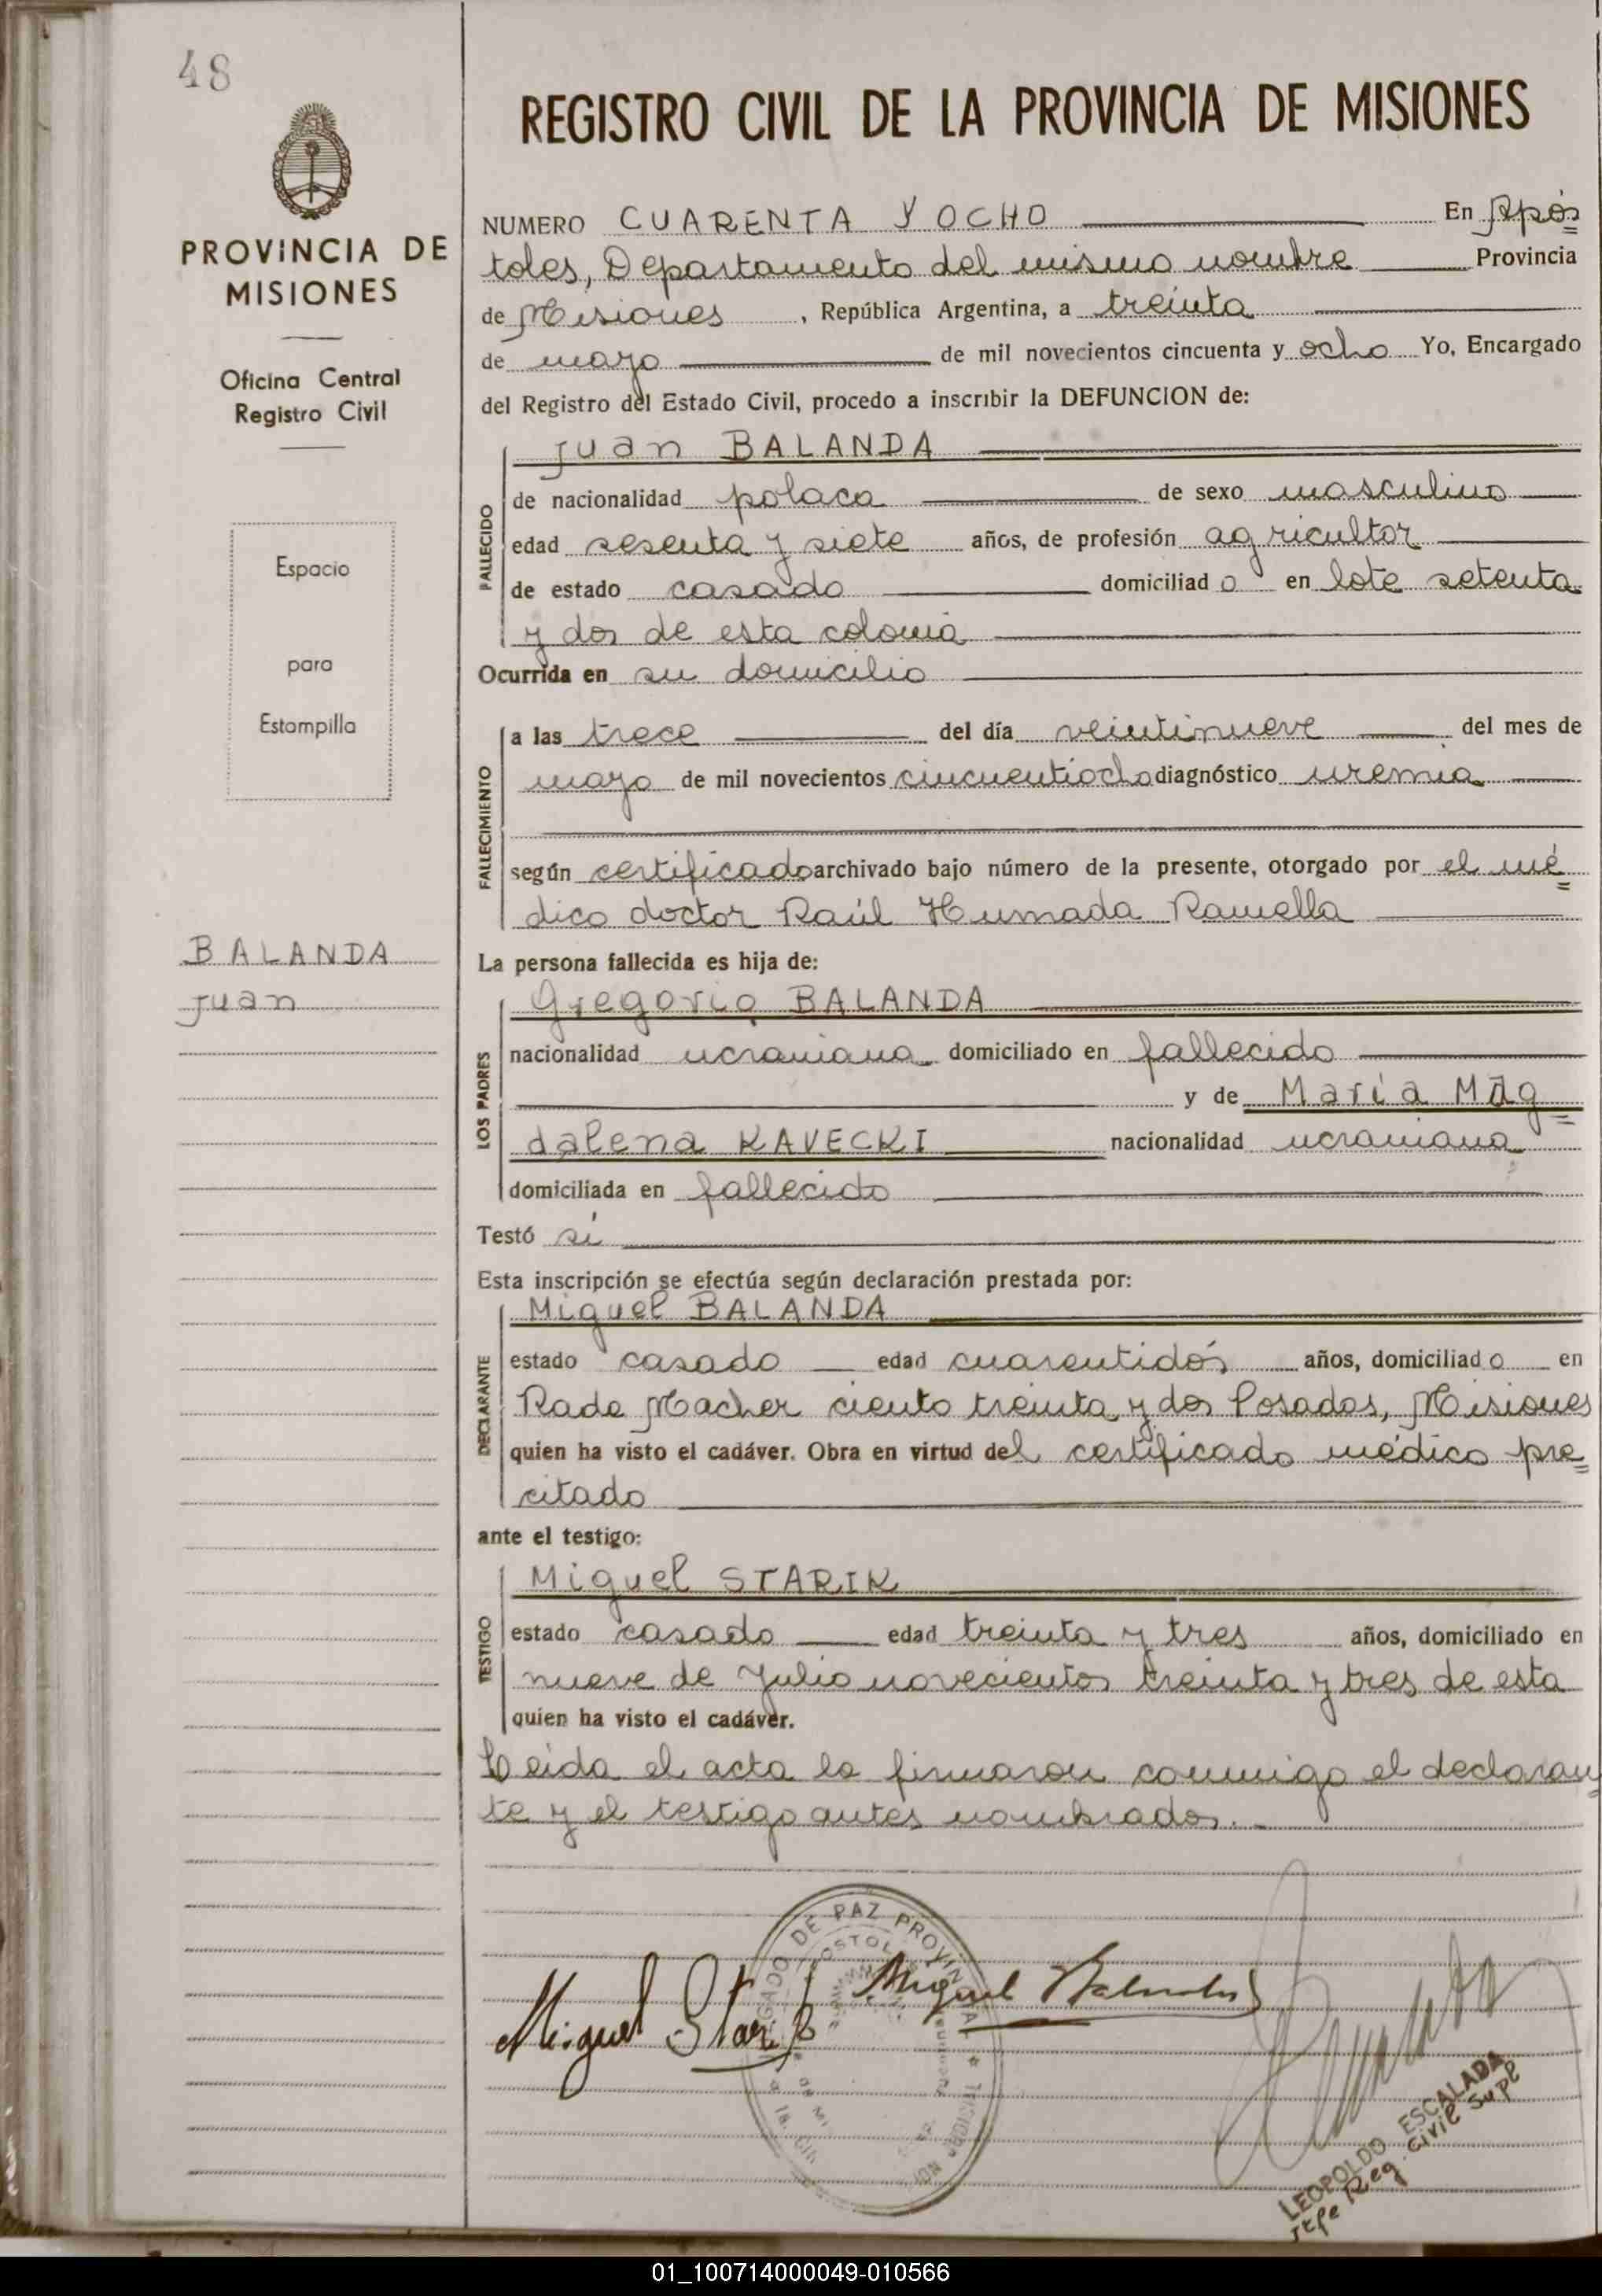 48
PROVINCIA DE
MISIONES
Oficina Central
Registro Civil
Espacio
para
Estampilla
BALANDA
Juan
REGISTRO CIVIL DE LA PROVINCIA DE MISIONES
NUMERO CUARENTA Y OCHO En Após=
toles, Departamento del mismo nombre Provincia
de Misiones, República Argentina, a treinta
de mayo de mil novecientos cincuenta y ocho Yo, Encargado
del Registro del Estado Civil, procedo a inscribir la DEFUNCION de:
FALLECIDO
Juan BALANDA
de nacionalidad polaca de sexo masculino
edad sesenta y siete años, de profesión agricultor
de estado casado domiciliado en lote setenta
y dos de esta colonia
Ocurrida en su domicilio
FALLECIMIENTO
a las trece del día veintinueve del mes de
mayo de mil novecientos cincuentiocho diagnóstico uremia
según certificado archivado bajo número de la presente, otorgado por el mé=
dico doctor Raúl Humada Ramella
La persona fallecida es hija de:
LOS PADRES
Gregorio BALANDA
nacionalidad ucraniana domiciliado en fallecido
y de María Mag=
dalena KAVECKI nacionalidad ucraniana
domiciliada en fallecido
Testó si
Esta inscripción se efectúa según declaración prestada por:
DECLARANTE
Miguel BALANDA
estado casado edad cuarentidós años, domiciliado en
Rade Macher ciento treinta y dos Posadas, Misiones
quien ha visto el cadáver. Obra en virtud del certificado médico pre=
citado
ante el testigo:
TESTIGO
Miguel STARIK
estado casado edad treinta y tres años, domiciliado en
nueve de Julio novecientos treinta y tres de esta
quien ha visto el cadáver.
Leída el acta la firmaron conmigo el declaran=
te y el testigo antes nombrados.
JUZGADO DE PAZ PROVINCIA
Miguel Starik
Miguel Balanda
LEOPOLDO ESCALADA
Jefe Reg. Civil Supl
01_100714000049-010566